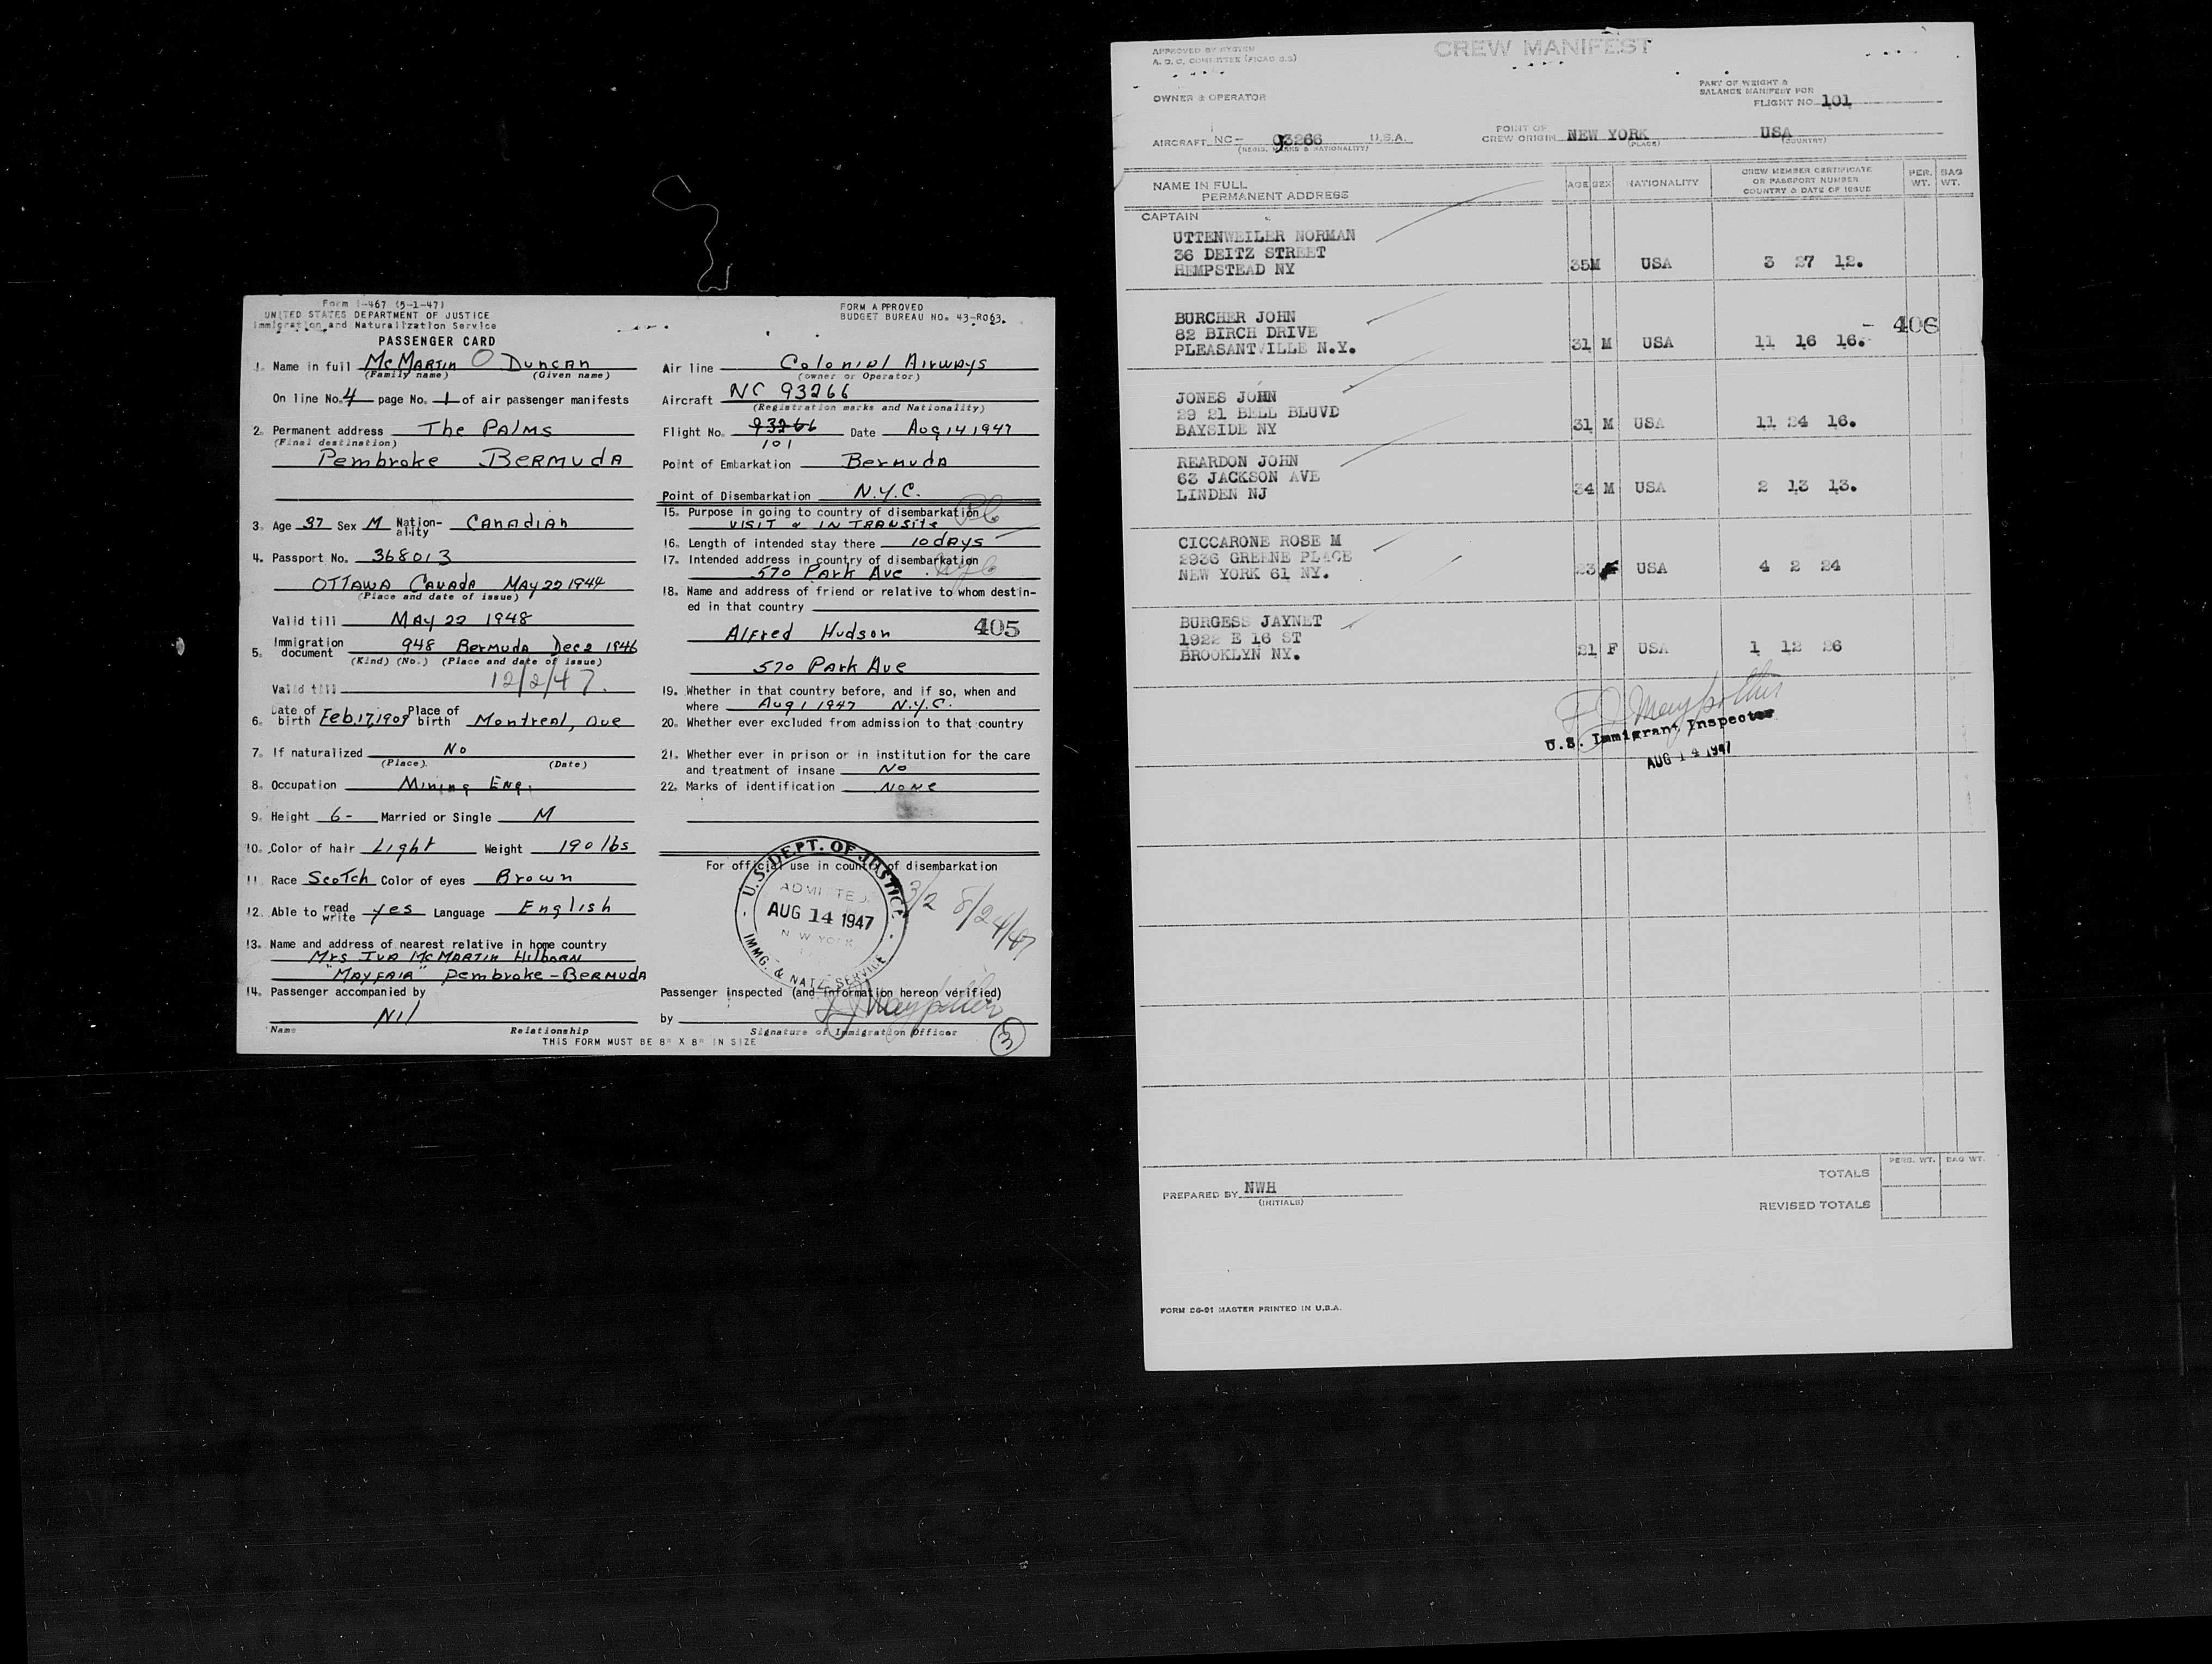 Form I-467 (5-1-47)
UNITED STATES DEPARTMENT OF JUSTICE
Immigration and Naturalization Service
FORM APPROVED
BUDGET BUREAU NO. 43-R063.
PASSENGER CARD
1. Name in full McMartin O Duncan
(Family name) (Given name)
On line No. 4 page No. 1 of air passenger manifests
2. Permanent address The Palms
(Final destination)
Pembroke Bermuda
3. Age 37 Sex M Nation-ality Canadian
4. Passport No. 368013
Ottawa Canada May 22 1944
(Place and date of issue)
Valid till May 22 1948
5. Immigration document 948 Bermuda Dec 2 1946
(Kind) (No.) (Place and date of issue)
Valid till 12/2/47.
6. Date of birth Feb. 17, 1909 Place of birth Montreal, Que
7. If naturalized No
(Place) (Date)
8. Occupation Mining Eng.
9. Height 6- Married or Single M
10. Color of hair Light Weight 190 lbs
11 Race Scotch Color of eyes Brown
12. Able to read write yes Language English
13. Name and address of nearest relative in home country
Mrs Iva McMartin Hilborn
"Mayfair" Pembroke - Bermuda
14. Passenger accompanied by
Nil
Name Relationship
THIS FORM MUST BE 8" X 8" IN SIZE
Air line Colonial Airways
(owner or Operator)
Aircraft NC 93266
(Registration marks and Nationality)
Flight No. 93266 Date Aug 14 1947
101
Point of Embarkation Bermuda
Point of Disembarkation N.Y.C.
15. Purpose in going to country of disembarkation
Visit & in transite
16. Length of intended stay there 10 days
17. Intended address in country of disembarkation
570 Park Ave. NYC
18. Name and address of friend or relative to whom destin-
ed in that country
Alfred Hudson 405
570 Park Ave
19. Whether in that country before, and if so, when and
where Aug 1 1947 N.Y.C.
20. Whether ever excluded from admission to that country
21. Whether ever in prison or in institution for the care
and treatment of insane No
22. Marks of identification None
For official use in country of disembarkation
U.S. DEPT. OF JUSTICE
ADMITTED
AUG 14 1947
NEW YORK
IMMG. & NATZ. SERVICE
3/2 8/24/47
Passenger inspected (and information hereon verified)
by
Signature of Immigration Officer
3
APPROVED BY SYSTEM
CREW MANIFEST
OWNER & OPERATOR
PART OF WEIGHT &
BALANCE MANIFEST FOR
FLIGHT NO. 101
AIRCRAFT NC- 93266 U.S.A.
(REGIS. MARKS & NATIONALITY)
POINT OF
CREW ORIGIN NEW YORK USA
(PLACE) (COUNTRY)
NAME IN FULL
PERMANENT ADDRESS
AGE SEX NATIONALITY
CREW MEMBER CERTIFICATE
OR PASSPORT NUMBER
COUNTRY & DATE OF ISSUE
PER. WT. BAG WT.
CAPTAIN
UTTENWEILER NORMAN
36 DEITZ STREET
HEMPSTEAD NY 35 M USA 3 27 12.
BURCHER JOHN
82 BIRCH DRIVE
PLEASANTVILLE N.Y. 31 M USA 11 16 16.- 406
JONES JOHN
29 21 BELL BLUVD
BAYSIDE NY 31 M USA 11 24 16.
REARDON JOHN
63 JACKSON AVE
LINDEN NJ 34 M USA 2 13 13.
CICCARONE ROSE M
2936 GREENE PLACE
NEW YORK 61 NY. 23 F USA 4 2 24
BURGESS JAYNET
1922 E 16 ST
BROOKLYN NY. 21 F USA 1 12 26
U.S. Immigrant Inspector
AUG 14 1947
PERS. WT. BAG WT.
TOTALS
REVISED TOTALS
PREPARED BY NWH
(INITIALS)
FORM 26-91 MASTER PRINTED IN U.S.A.